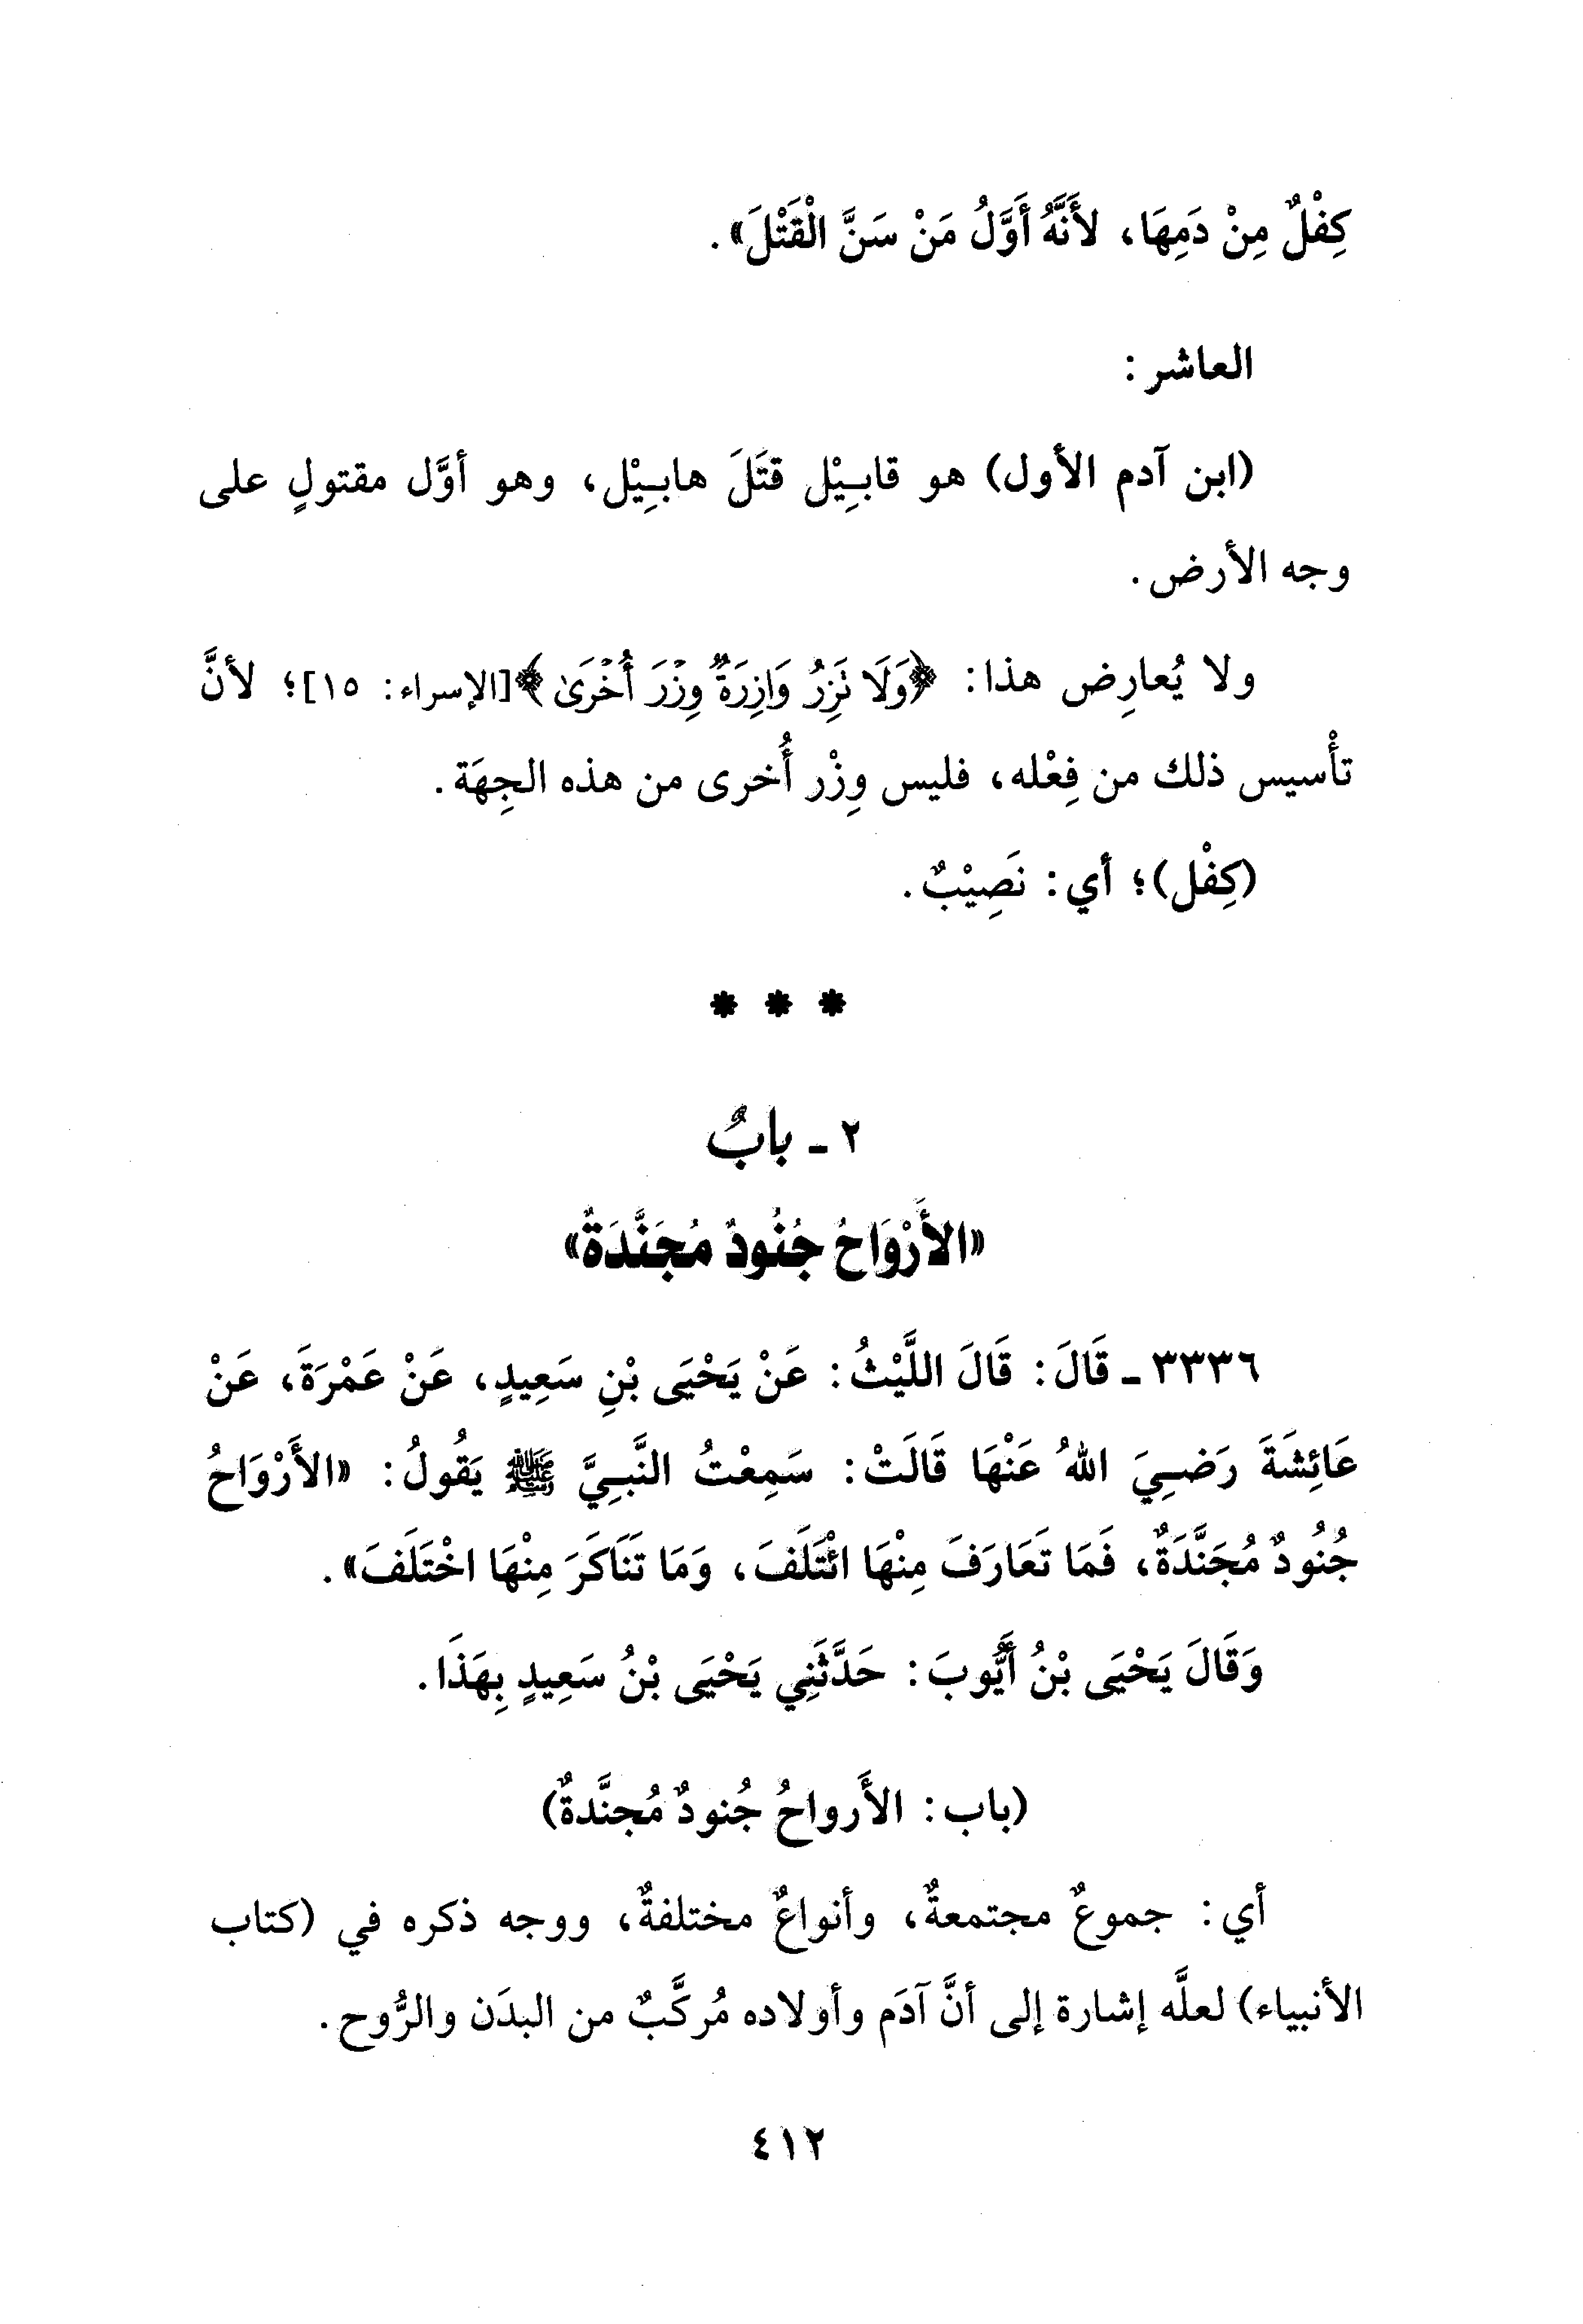 كِفْلٌ مِنْ دَمِهَا، لأَنَّهُ أَوَّلُ مَنْ سَنَّ الْقَتْلَ».
العاشر:
(ابن آدم الأول) هو قابِيْل قتَلَ هابِيْل، وهو أوَّل مقتولٍ على
وجه الأرض.
ولا يُعارِض هذا: ﴿وَلَا نَزِرُ وَازِرَةٌ وِزْرَ أُخْرَىٰ﴾[الإسراء: ١٥]؛ لأنَّ
تأْسيس ذلك من فِعْله، فليس وِزْر أُخرى من هذه الجِهَة.
(كِفْل)؛ أي: نَصِيْبٌ.
* * *
٢ - بابٌ
«الأَرْوَاحُ جُنُودٌ مُجَنَّدَةٌ»
٣٣٣٦ - قَالَ: قَالَ اللَّيْثُ: عَنْ يَحْيَى بْنِ سَعِيدٍ، عَنْ عَمْرَةَ، عَنْ
عَائِشَةَ رَضِيَ اللهُ عَنْهَا قَالَتْ: سَمِعْتُ النَّبِيَّ ﷺ يَقُولُ: «الأَرْوَاحُ
جُنُودٌ مُجَنَّدَةٌ، فَمَا تَعَارَفَ مِنْهَا ائْتَلَفَ، وَمَا تَنَاكَرَ مِنْهَا اخْتَلَفَ».
وَقَالَ يَحْيَى بْنُ أَيُّوبَ: حَدَّثَنِي يَحْيَى بْنُ سَعِيدٍ بِهَذَا.
(باب: الأَرواحُ جُنودٌ مُجنَّدةٌ)
أي: جموعٌ مجتمعةٌ، وأنواعٌ مختلفةٌ، ووجه ذكره في (كتاب
الأنبياء) لعلَّه إشارة إلى أنَّ آدَم وأولاده مُركَّبٌ من البدَن والرُّوح.
٤١٢